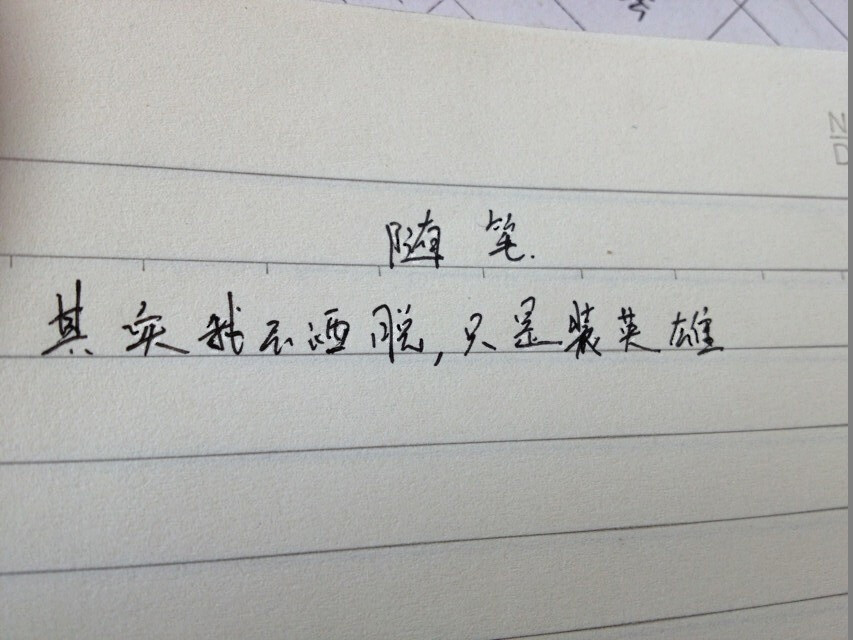 随笔.
其实我不洒脱,只是装英雄